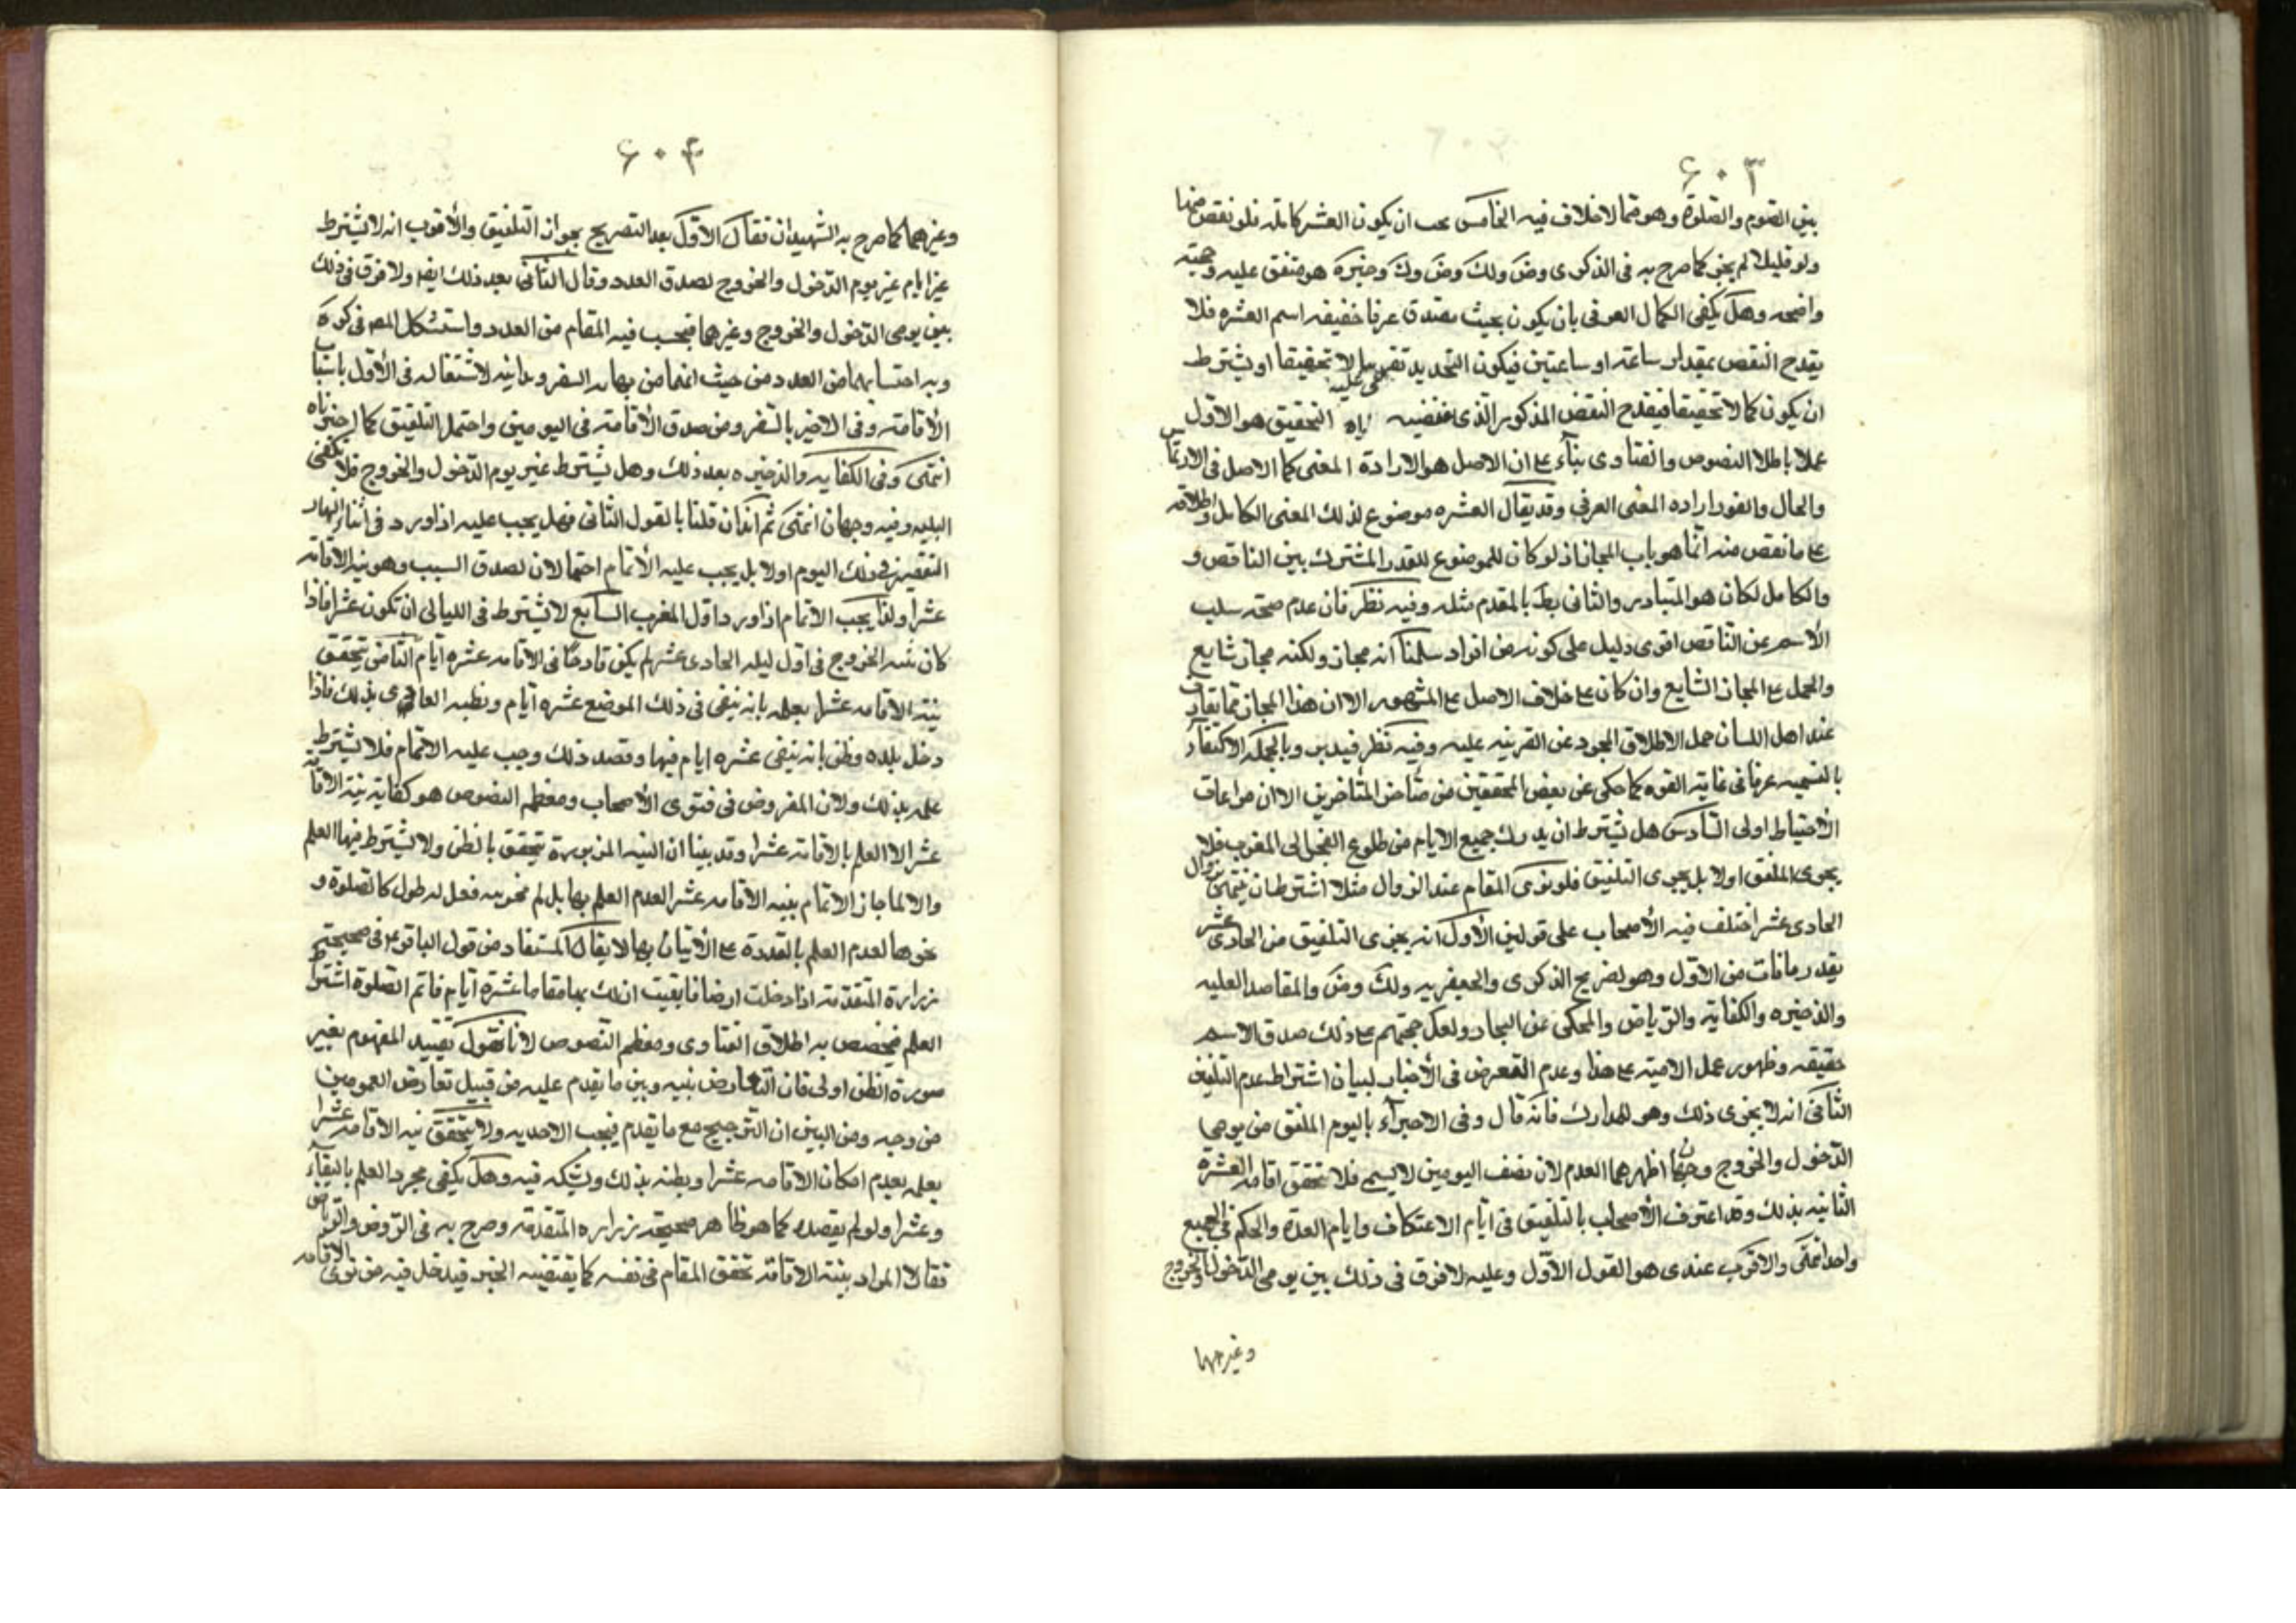 ۶۰۳
بين الصوم والصلوة وهو مما لا خلاف فيه الخامس يجب ان يكون العشر كاملة فلو نقص منها
ولو قليلا لم يجز كما صرح به فى الذكرى وض ولك وض وك وخيرة هو متفق عليه وحجته
واضحه وهل يكفى الكمال العرفى بان يكون بحيث يصدق عرفا حقيقه اسم العشره فلا
يقدح النقص بمقدار ساعة او ساعتين فيكون التحديد تقريبا لا تحقيقا او يشترط
ان يكون كمالا تحقيقا فيقدح النقص المذكور الذى التحقيق هو الاول
عملا باطلا النصوص والفتاوى بناء على ان الاصل هو الارادة المعنى كما الاصل فى
والحال والفور اراده المعنى العرفى وقد يقال العشره موضوع لذلك المعنى الكامل واطلاقه
على ما نقص منه انما هو باب المجاز اذ لو كان للموضوع للقدر المشترك بين الناقص و
والكامل لكان هو المتبادر والثانى بط بالمقدم مثله وفيه نظر فان عدم صحة سلب
الاسم عن الناقص اقوى دليل على كونه من افراد سلمنا انه مجاز ولكنه مجاز شايع
والحمل على المجاز الشايع وان كان على خلاف الاصل على المشهور الا ان هذا المجاز مما يقارب
عند اهل اللسان حمل الاطلاق المجرد عن القرينه عليه وفيه نظر فيدبر وبالجمله الاكتفاء
بالتسميه عرفا فى غاية القوه كما حكى عن بعض المحققين من متاخر المتاخرين الا ان مراعات
الاحتياط اولى السادس هل يشترط ان يدرك جميع الايام من طلوع الفجر الى المغرب فلا
يجزى الملفق او لا بل يجزى التلفيق فلو نوى المقام عند الزوال مثلا اشترط ان ينتهى زوال
الحادى عشر اختلف فيه الأصحاب على قولين الأول انه يجزى التلفيق من الحادى عشر
بقدر ما فات من الاول وهو لصريح الذكرى والجعفريه ولك وض والمقاصد العليه
والذخيره والكفايه والرياض والمحكى عن البحار ولعل حجتهم على ذلك صدق الاسم
حقيقه وظهور عمل الاميه على هذا وعدم التعرض فى الأخبار لبيان اشتراط عدم التلفيق
الثانى انه لا يجزى ذلك وهو للمدارك فانه قال وفى الاجزاء باليوم الملفق من يومى
الدخول والخروج وجهان اظهرهما العدم لان نصف اليومين لا يسمى فلا تحقق اقامة العشرة
الثانيه بذلك وقد اعترف الأصحاب بالتلفيق فى ايام الاعتكاف وايام العدة والحكم فى الجميع
واحد انتهى والاقرب عندى هو القول الأول وعليه لا فرق فى ذلك بين يومى الدخول والخروج
وغيرهما
۶۰۴
وغيرهما كما صرح به الشهيدان فقال الاول بعد التصريح بجواز التلفيق والأقرب انه لا يشترط
عشر ايام غير يوم الدخول والخروج لصدق العدد وقال الثانى بعد ذلك ايضا ولا فرق فى ذلك
بين يومى الدخول والخروج وغيرهما فيحسب فيه المقام من العدد واستشكل المص فى كره
وبه احتسابهما من العدد من حيث انهما من نهايه السفر وبدايته لاشتغاله فى الأول باسباب
الأقامة وفى الاخير بالسفر ومن صدق الاقامة فى اليومين واحتمل التلفيق كما اخترناه
انتهى وفى الكفايه والذخيره بعد ذلك وهل يشترط غير يوم الدخول والخروج فلا يكفى
البليه وفيه وجهان انتهى ثم ان كان قلنا بالقول الثانى فهل يجب عليه اذا ورد فى اثناء النهار
التقصير فى ذلك اليوم اولا بل يجب عليه الأتمام احتمالان لصدق السبب وهو نيه الاقامه
عشرا ولذا يجب الاتمام اذا ورد اول المغرب السابع لا يشترط فى الليالى ان تكون عشرا فاذا
كان الخروج فى اول ليلة الحادى عشر لم يكن قادحا فى الاقامه عشره ايام الثامن يتحقق
نية الاقامه عشرا بعلمه بانه يبقى فى ذلك الموضع عشره ايام وبظنه العادى بذلك فاذا
دخل بلده وظن بانه يبقى عشره ايام فيها وقصد ذلك وجب عليه الاتمام فلا يشترط
علمه بذلك ولان المفروض فى فتوى الأصحاب ومعظم النصوص هو كفاية نية الاقامة
عشرا لا العلم بالاقامة عشرا وقد بينا ان النيه المزبورة يتحقق بالظن ولا يشترط فيها العلم
والا لما جاز الاتمام بنيه الأقامه عشرا لعدم العلم بها بل لم فعل له طول كالصلوة و
نحوها لعدم العلم بالقدرة على الأتيان بها لا يقال المستفاد من قول الباقر ع فى صحيحة
زرارة المتقدمة اذا دخلت ارضا فايقنت ان لك بها مقاما عشرة ايام فاتم الصلوة اشترط
العلم فيخصص به اطلاق الفتاوى ومعظم النصوص لانا نقول تقييد المفهوم بغير
صورة الظن اولى فان التعارض بينه وبين ما يقدم عليه من قبيل تعارض العمومين
من وجه ومن البين ان الترجيح مع ما يقدم فيجب الاحديه ولا يتحقق نيه الاقامه عشرا
بعلمه بعدم امكان الاقامه عشرا وبظنه بذلك وبشكه فيه وهل يكفى مجرد العلم بالبقاء
وعشرا ولو لم يقصده كما هو ظاهر صحيحة زراره المتقدمة وصرح به فى الروض والرياض
فقالا المراد بنية الاقامة تحقق المقام فى نفسه كما يقتضيه الخبر فيدخل فيه من نوى الاقامه